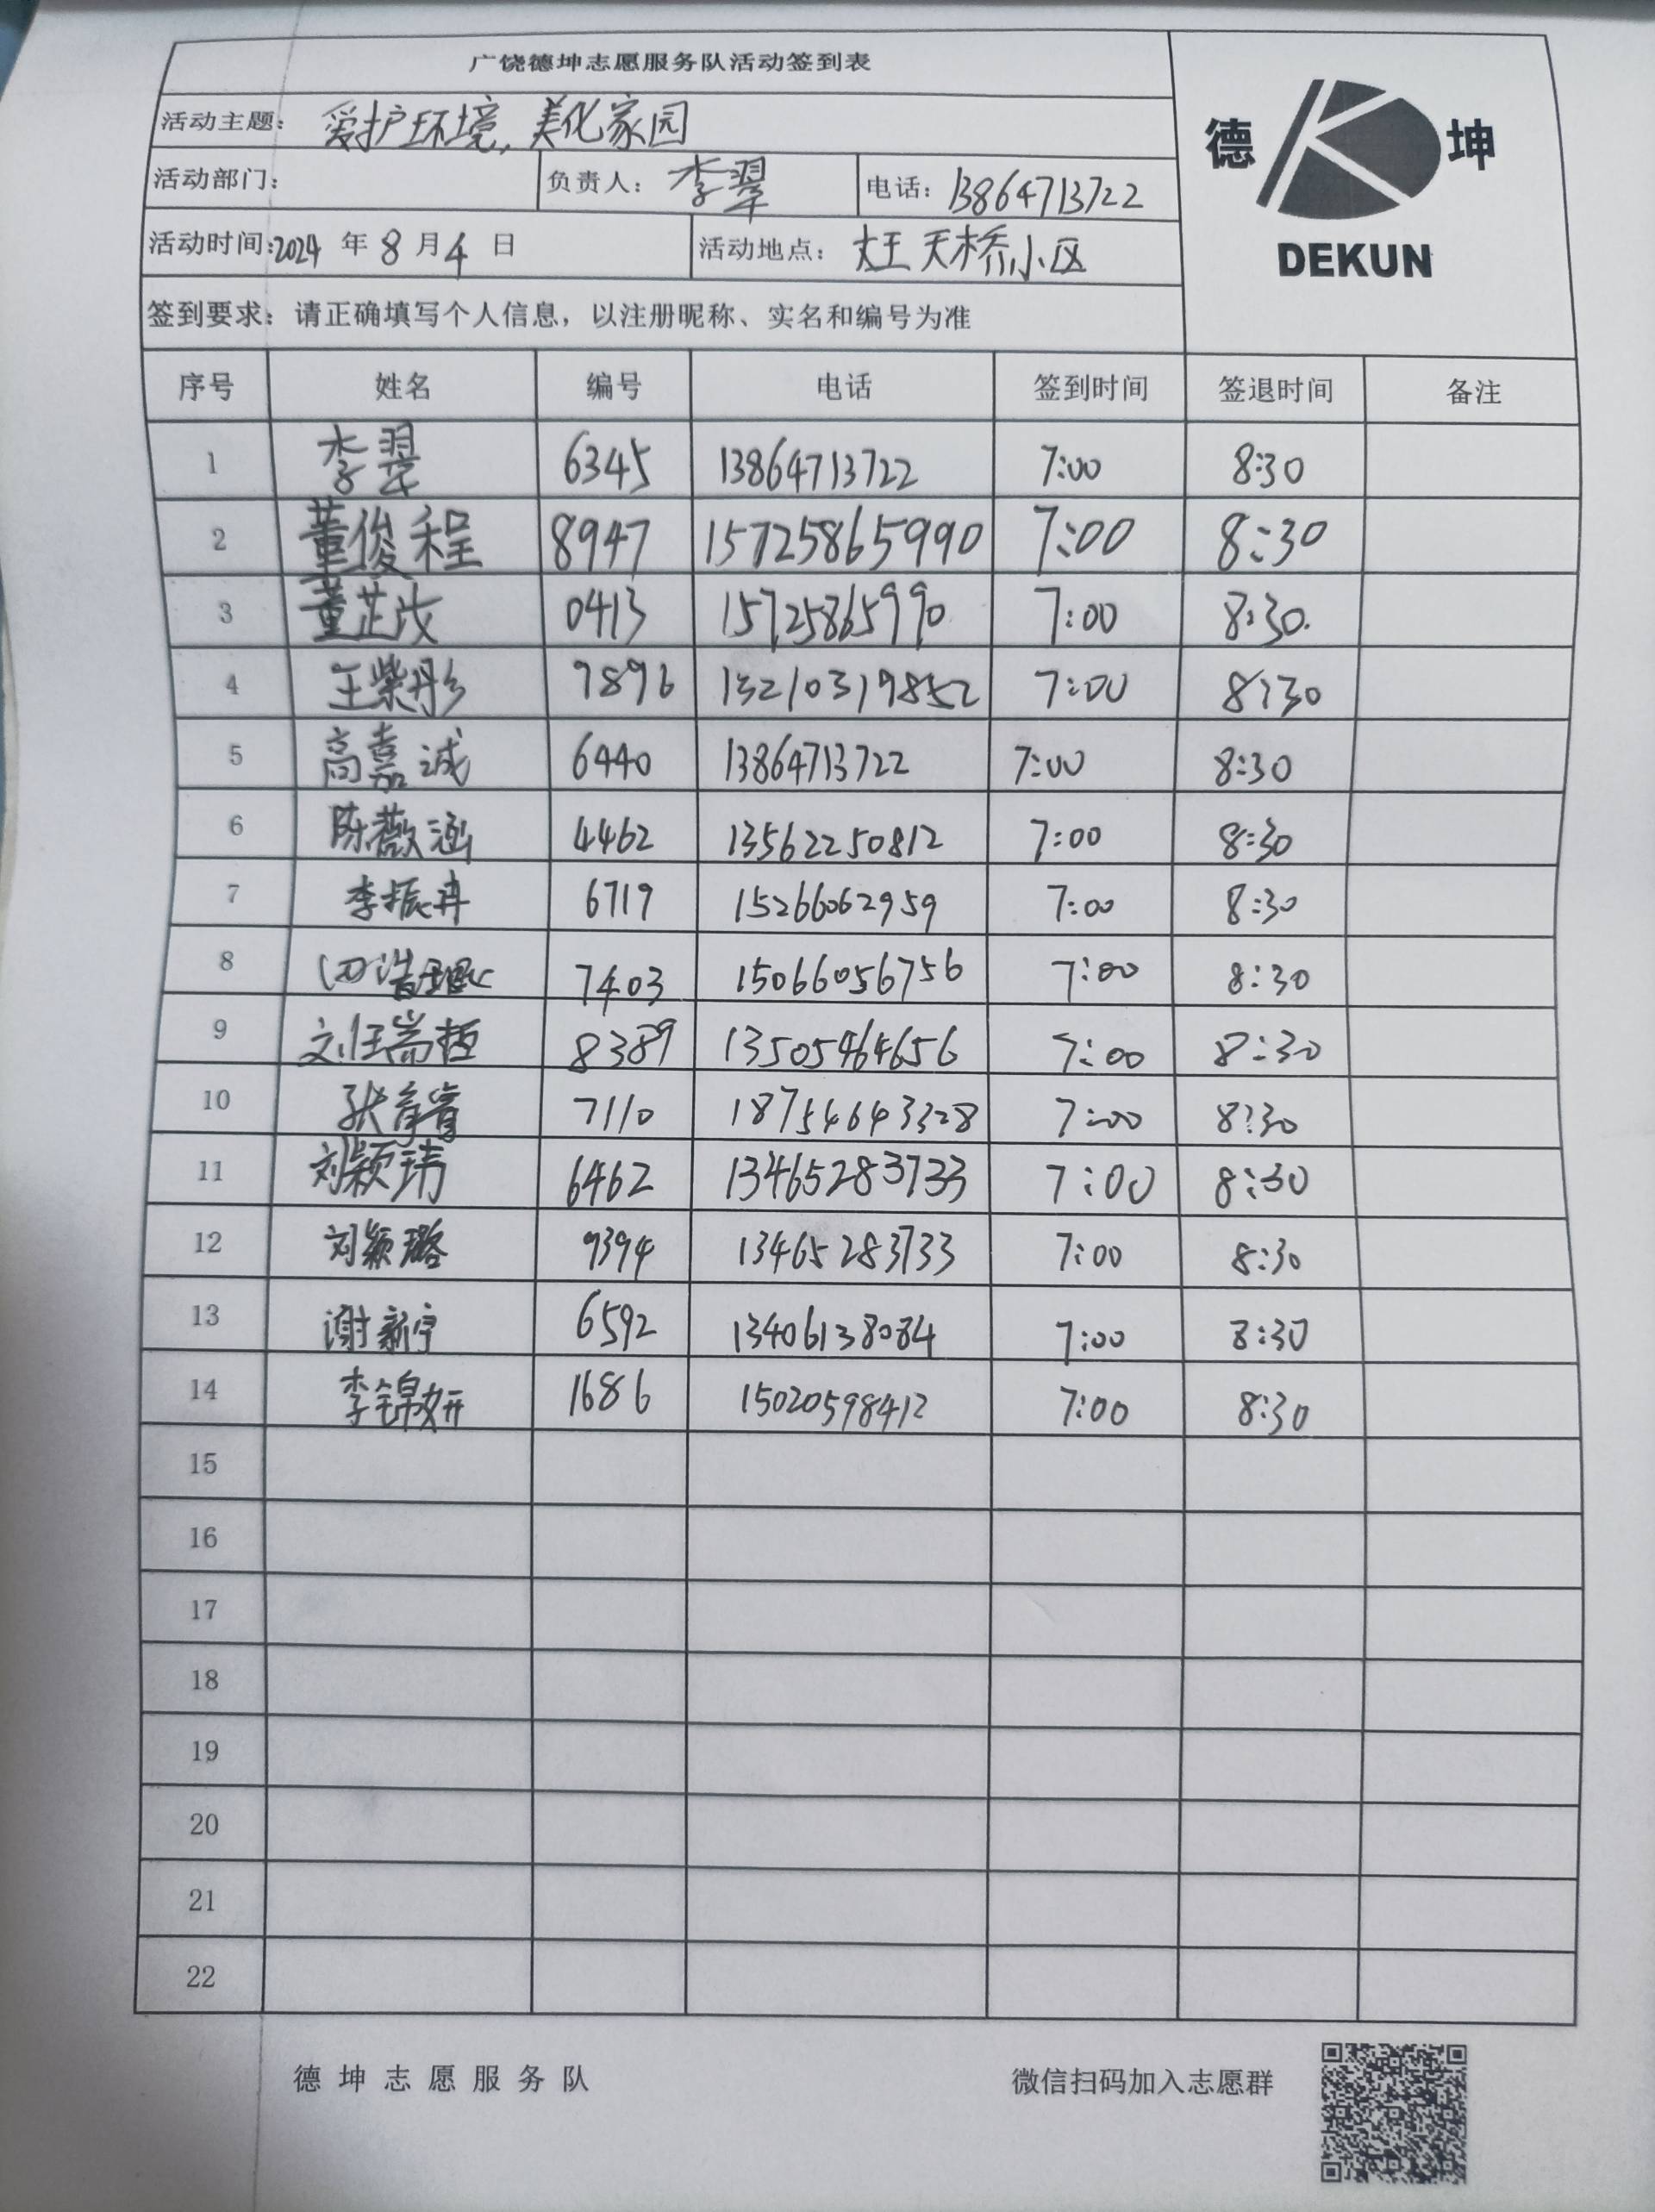 广饶德坤志愿服务队活动签到表
德 坤
DEKUN
活动主题: 爱护环境,美化家园
活动部门: 负责人: 李翠 电话: 13864713722
活动时间:2024 年 8 月 4 日 活动地点: 天桥小区
签到要求: 请正确填写个人信息，以注册昵称、实名和编号为准
序号 姓名 编号 电话 签到时间 签退时间 备注
1 李翠 6345 13864713722 7:00 8:30
2 董俊程 8947 157258865990 7:00 8:30
3 董芷汝 0413 15725865990 7:00 8:30.
4 王紫彤 7896 13210319852 7:00 8:30
5 高嘉诚 6440 13864713722 7:00 8:30
6 陈薇涵 4462 13562250812 7:00 8:30
7 李振冉 6719 15266062959 7:00 8:30
8 7403 15066056756 7:00 8:30
9 8389 13505464656 7:00 8:30
10 7110 18754643328 7:00 8:30
11 刘颖玮 6462 13465283733 7:00 8:30
12 刘颖璐 9394 13465283733 7:00 8:30
13 谢新宇 6592 13406138084 7:00 8:30
14 李锦妍 1686 15020598412 7:00 8:30
15
16
17
18
19
20
21
22
德坤志愿服务队 微信扫码加入志愿群